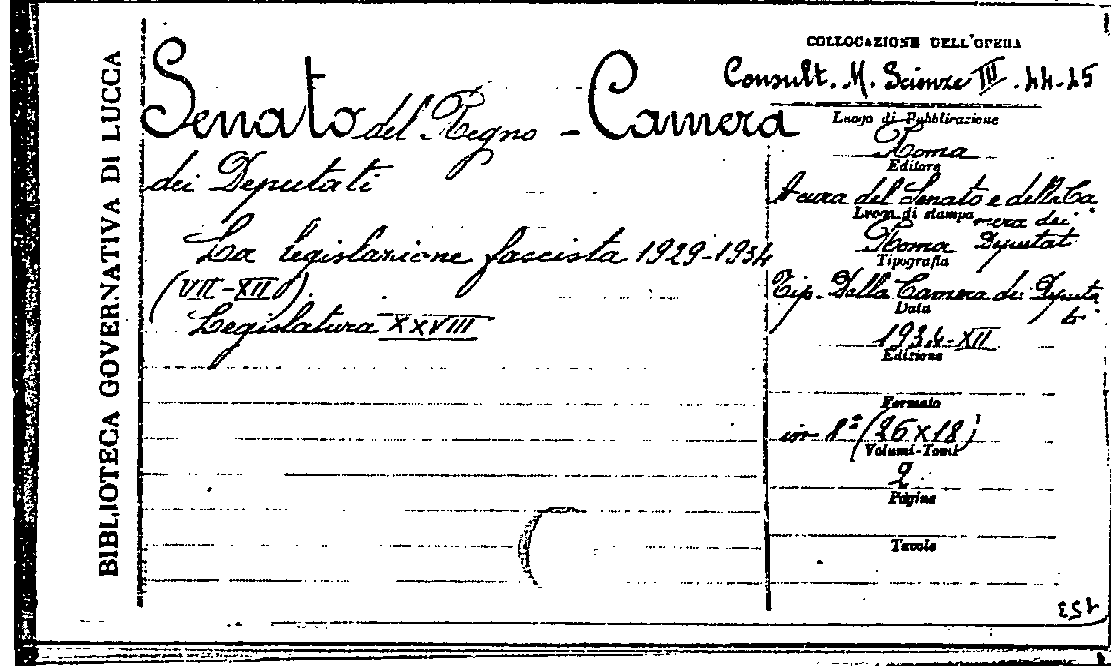 BIBLIOTECA GOVERNATIVA DI LUCCA
Senato del Regno - Camera
dei Deputati
La legislazione fascista 1929-1934
(VII-XII).
Legislatura XXVIII
COLLOCAZIONE DELL'OPERA
Consult. M. Scienze III. 44-45
Luogo di Pubblicazione
Roma
Editore
A cura del Senato e della Ca
mera dei
Luogo di stampa
Roma Deputati
Tipografia
Tip. Della Camera dei Deputa
ti
Data
1934-XII
Edizione
Formato
in 8° (26x18)
Volumi-Tomi
2
Pagine
Tavole
153